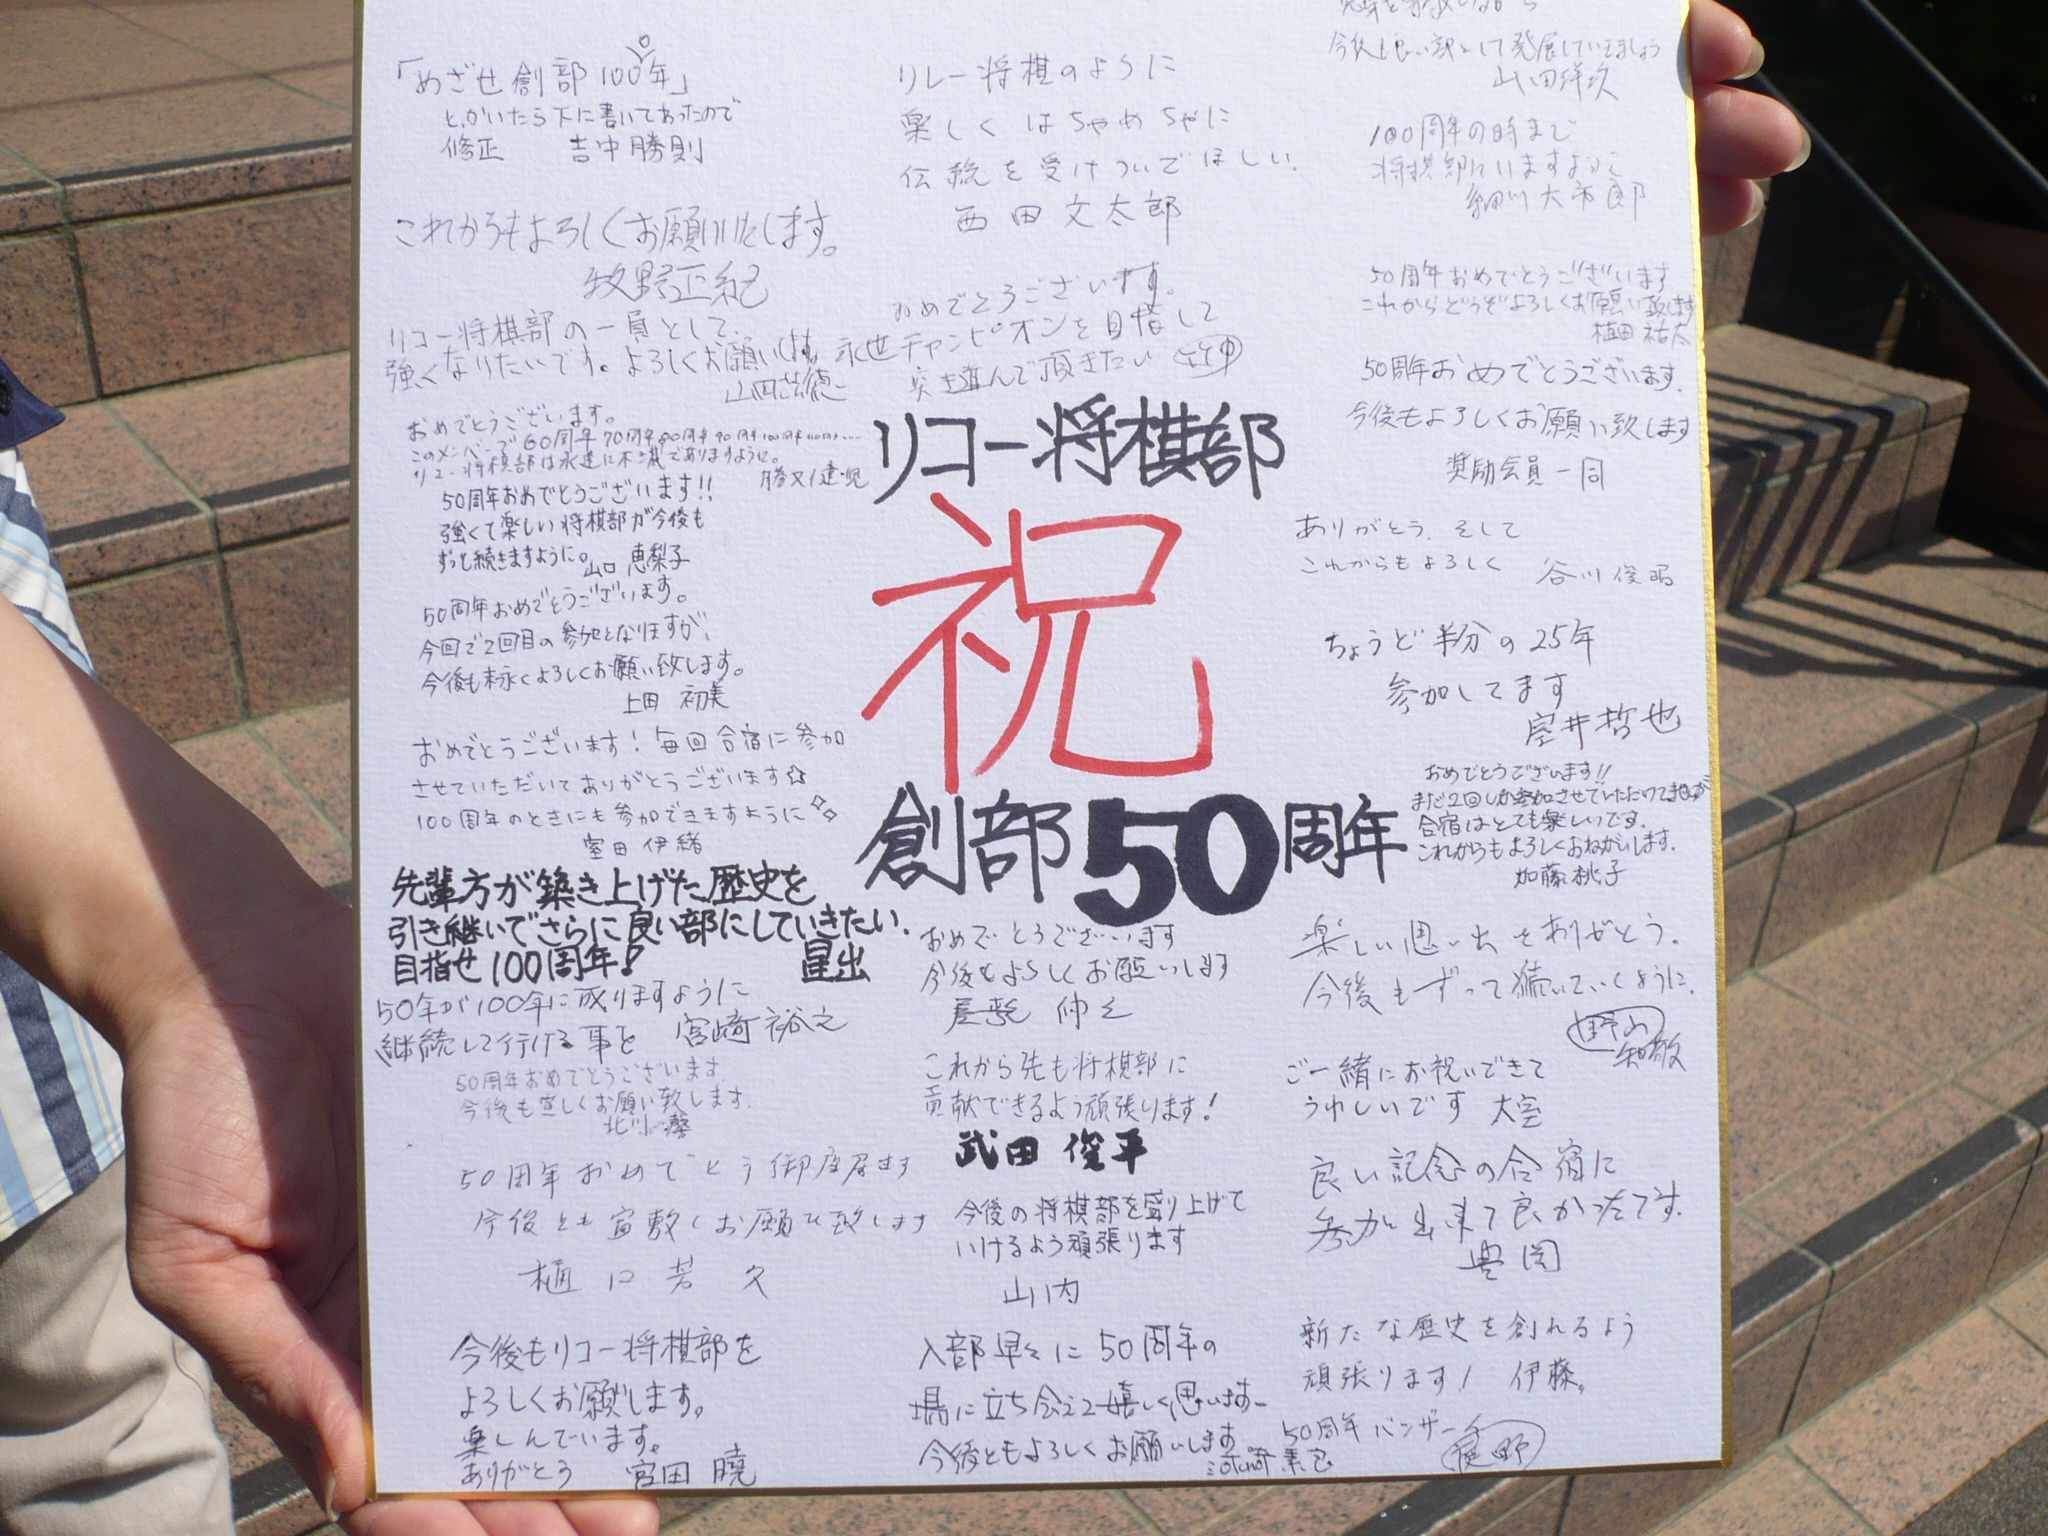 「めざせ創部100年」
とかいたら下に書いてあったので
修正 吉中勝則
これからもよろしくお願いいたします。
牧野正紀
リコー将棋部の一員として、
強くなりたいです。よろしくお願いします。
おめでとうございます。
このメンバーで60周年70周年80周年90周年100周年110周年……
リコー将棋部は永遠に不滅でありますように。
50周年おめでとうございます!!
強くて楽しい将棋部が今後も
ずっと続きますように。山口 恵梨子
50周年おめでとうございます。
今回で2回目の参加となりますが、
今後も末永くよろしくお願い致します。
上田 初美
おめでとうございます!毎回合宿に参加
させていただいてありがとうございます☆
100周年のときにも参加できますように☆
室田 伊緒
先輩方が築き上げた歴史を
引き継いでさらに良い部にしていきたい.
目指せ100周年! 星出
50年が100年に成りますように
継続して行ける事を 宮崎裕之
50周年おめでとうございます
今後も宜しくお願い致します.
50周年おめでとう御座居ます
今後とも宜敷くお願ひ致します
樋口芳久
今後もリコー将棋部を
よろしくお願いします。
楽しんでいます。
ありがとう 宮田 暁
リレー将棋のように
楽しくはちゃめちゃに
伝統を受けついでほしい.
西田文太郎
おめでとうございます。
永世チャンピオンを目指して
突き進んで頂きたい
リコー将棋部
祝
創部50周年
おめでとうございます
今後もよろしくお願いします
これから先も将棋部に
貢献できるよう頑張ります!
武田 俊平
今後の将棋部を盛り上げて
いけるよう頑張ります
山内
入部早々に50周年の
場に立ち会えて嬉しく思います
今後ともよろしくお願いします
今後も良い部として発展していきましょう
山田洋次
100周年の時まで
将棋部にいますように
細川大市郎
50周年おめでとうございます
これからどうぞよろしくお願い致します
植田 祐太
50周年おめでとうございます.
今後もよろしくお願い致します
奨励会員一同
ありがとう.そして
これからもよろしく 谷川俊昭
ちょうど半分の25年
参加してます
室井哲也
おめでとうございます!!
まだ2回しか参加させていただけてませんが
合宿はとても楽しいです.
これからもよろしくおねがいします.
加藤桃子
楽しい思い出をありがとう.
今後もずっと続いていくように.
野山知敬
ご一緒にお祝いできて
うれしいです 大室
良い記念の合宿に
参加出来て良かったです.
豊岡
新たな歴史を創れるよう
頑張ります! 伊藤
50周年 バンザーイ